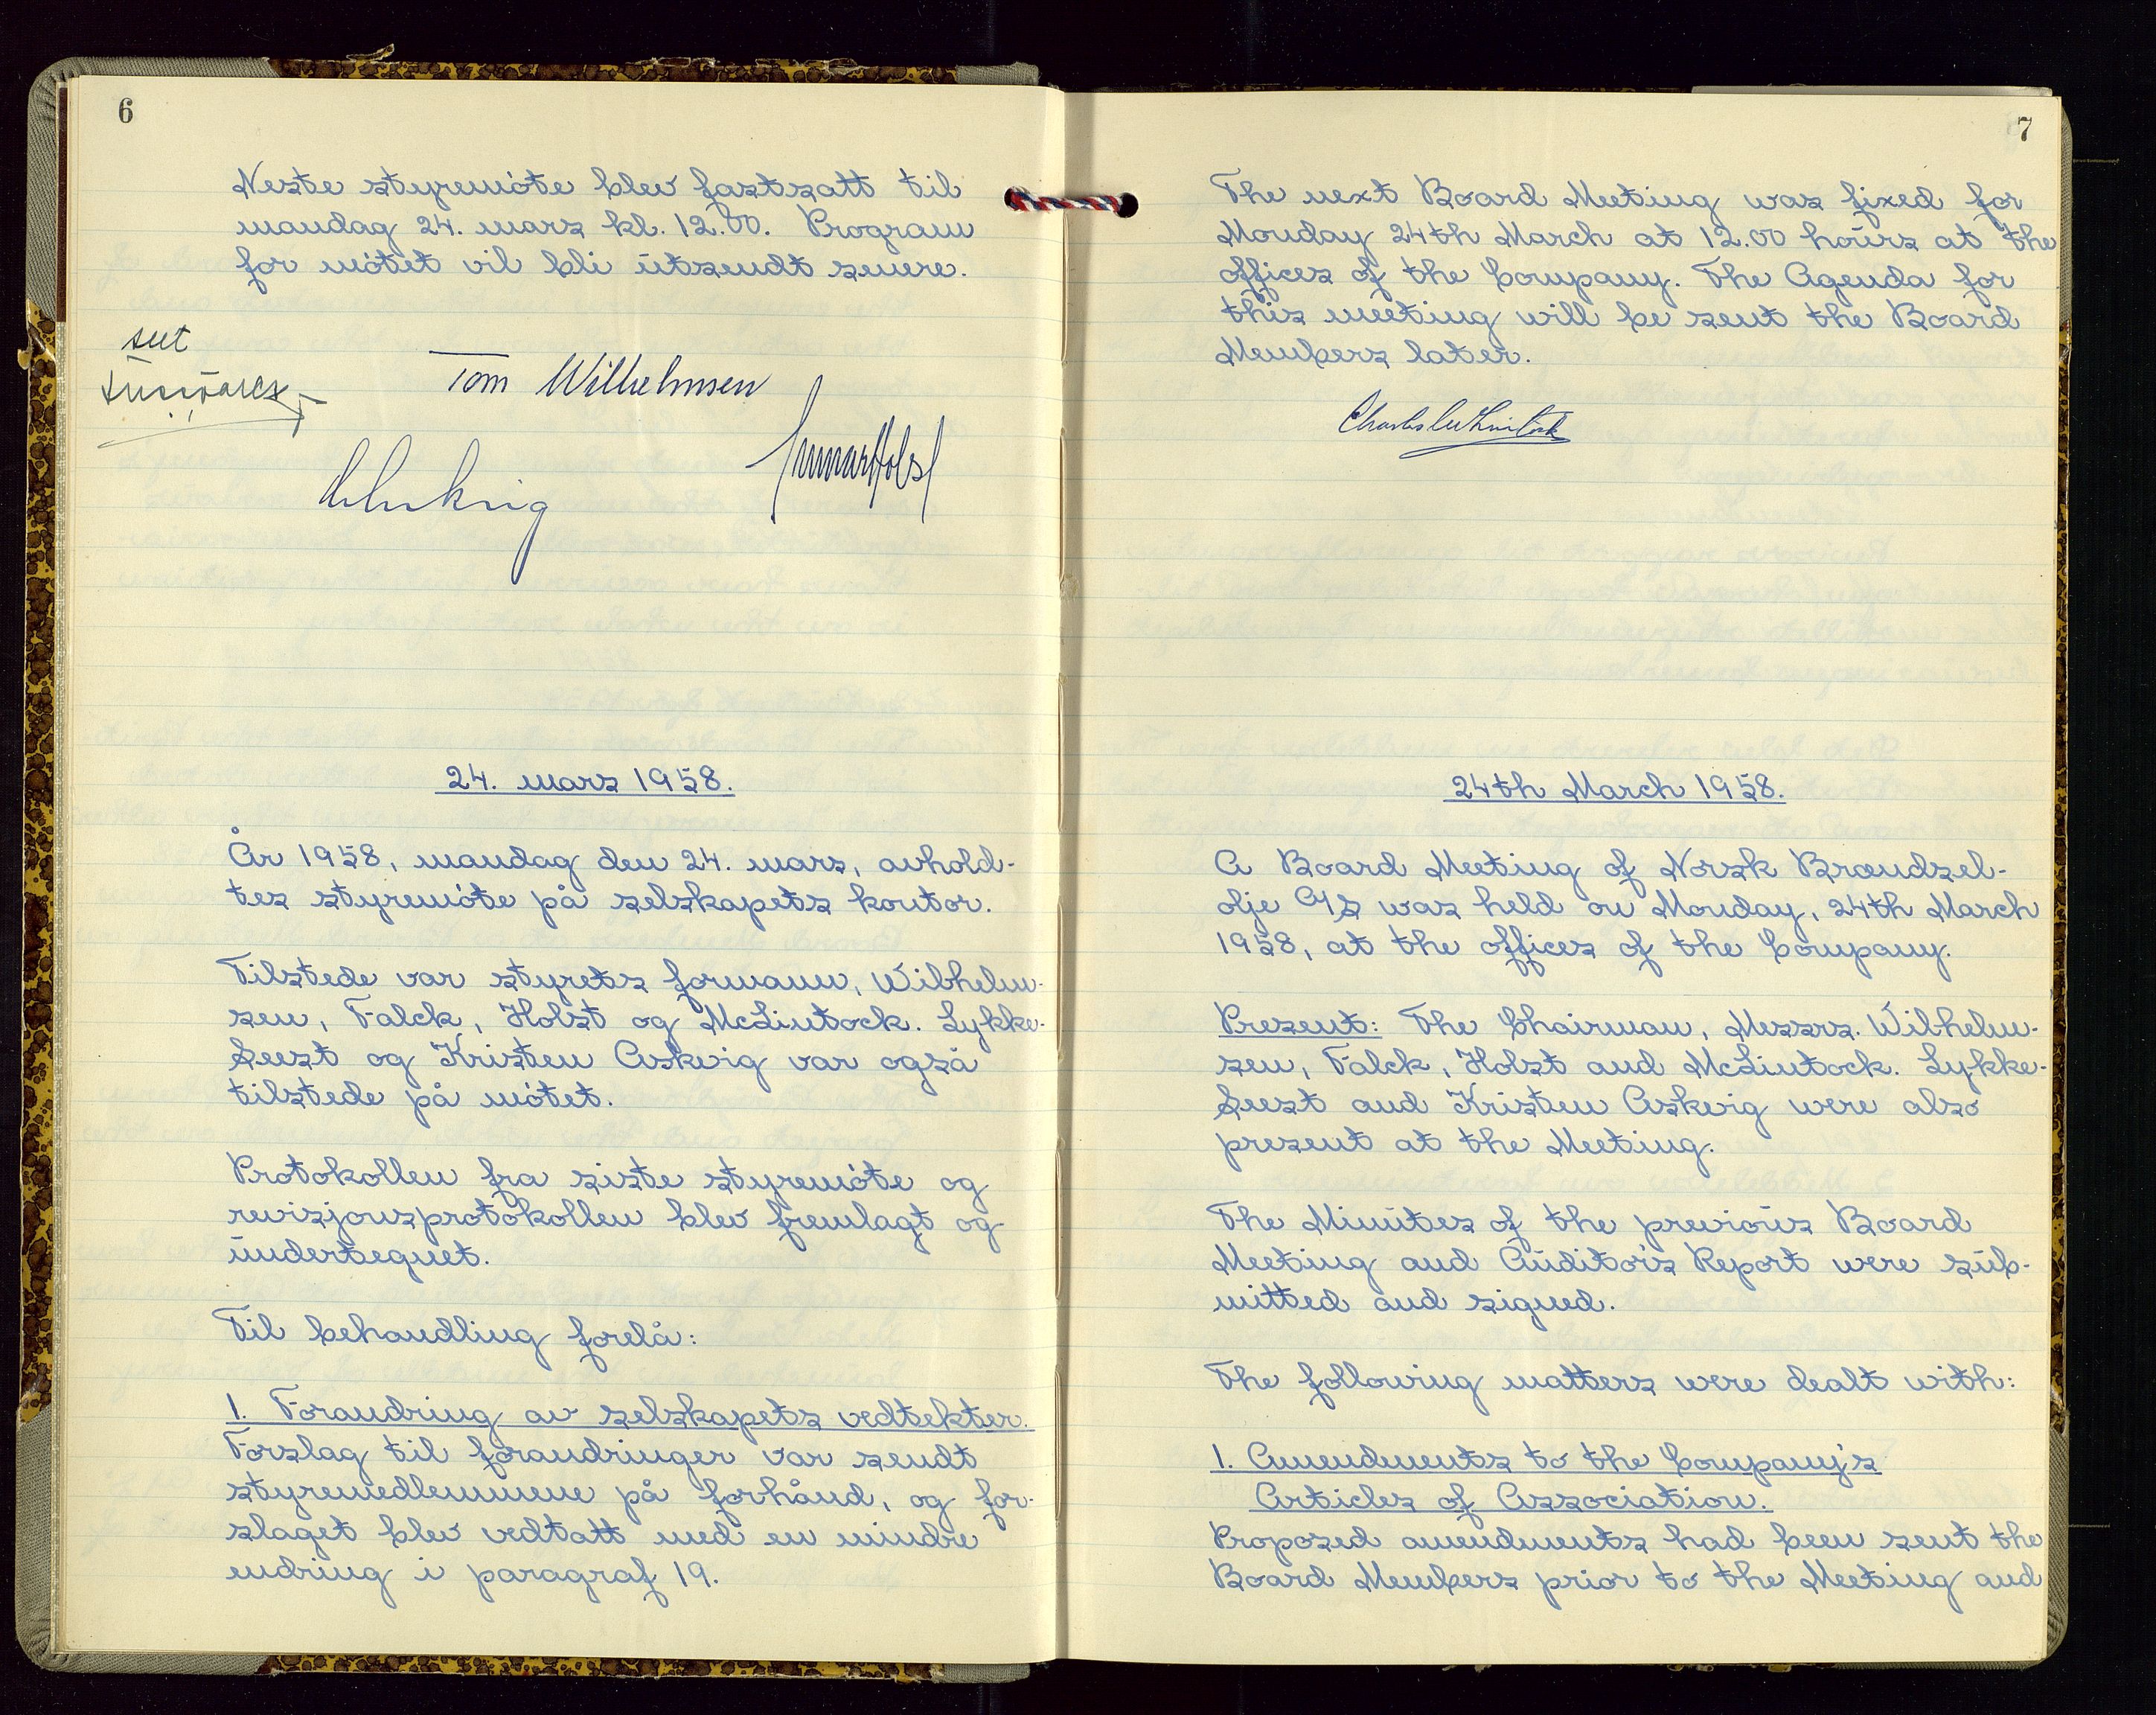 6
Neste styremöte blev fastsatt til
mandag 24. mars kl. 12.00. Program
for mötet vil bli utsendt senere.
sett
Tom Wilhelmsen
Gunnar Holst
24. mars 1958.
År 1958, mandag den 24. mars, avhold-
tes styremöte på selskapets kontor.
Tilstede var styrets formann, Wilhelm-
sen, Falck, Holst og McLintock. Lykke-
Seest og Kristen Askvig var også
tilstede på mötet.
Protokollen fra siste styremöte og
revisjonsprotokollen blev fremlagt og
undertegnet.
Til behandling forelå:
1. Forandring av selskapets vedtekter.
Forslag til forandringer var sendt
styremedlemmene på forhånd, og for-
slaget blev vedtatt med en mindre
endring i paragraf 19.
7
The next Board Meeting was fixed for
Monday 24th March at 12.00 hours at the
offices of the Company. The Agenda for
this meeting will be sent the Board
Members later.
Charles McLintock
24th March 1958.
A Board Meeting of Norsk Brændsel-
olje A/S was held on Monday, 24th March
1958, at the offices of the Company.
Present: The Chairman, Messrs. Wilhelm-
sen, Falck, Holst and McLintock. Lykke-
Seest and Kristen Askvig were also
present at the Meeting.
The Minutes of the previous Board
Meeting and Auditor's Report were sub-
mitted and signed.
The following matters were dealt with:
1. Amendments to the Company's
Articles of Association.
Proposed amendments had been sent the
Board Members prior to the Meeting and